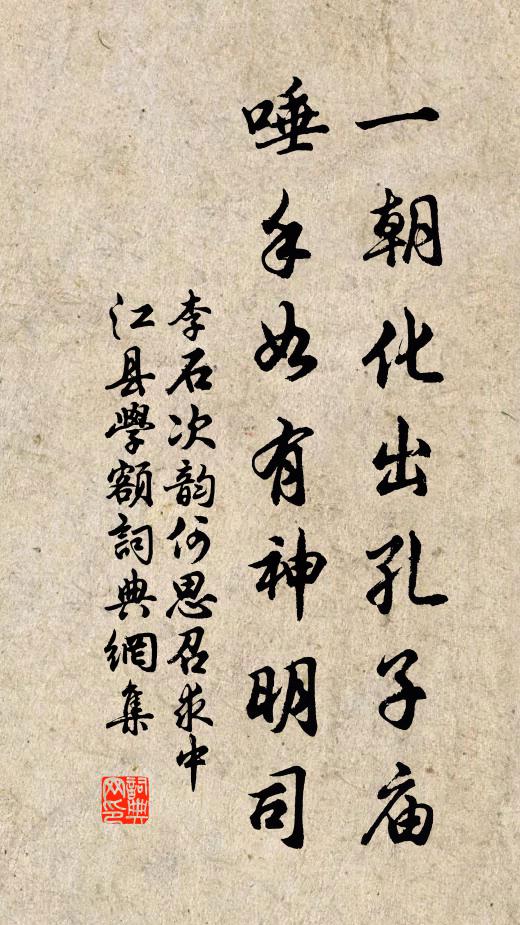 一朝化出孔子庙
唾手如有神明司
李石次韵何思召求中
江县學额詞典網集
詞典
网印